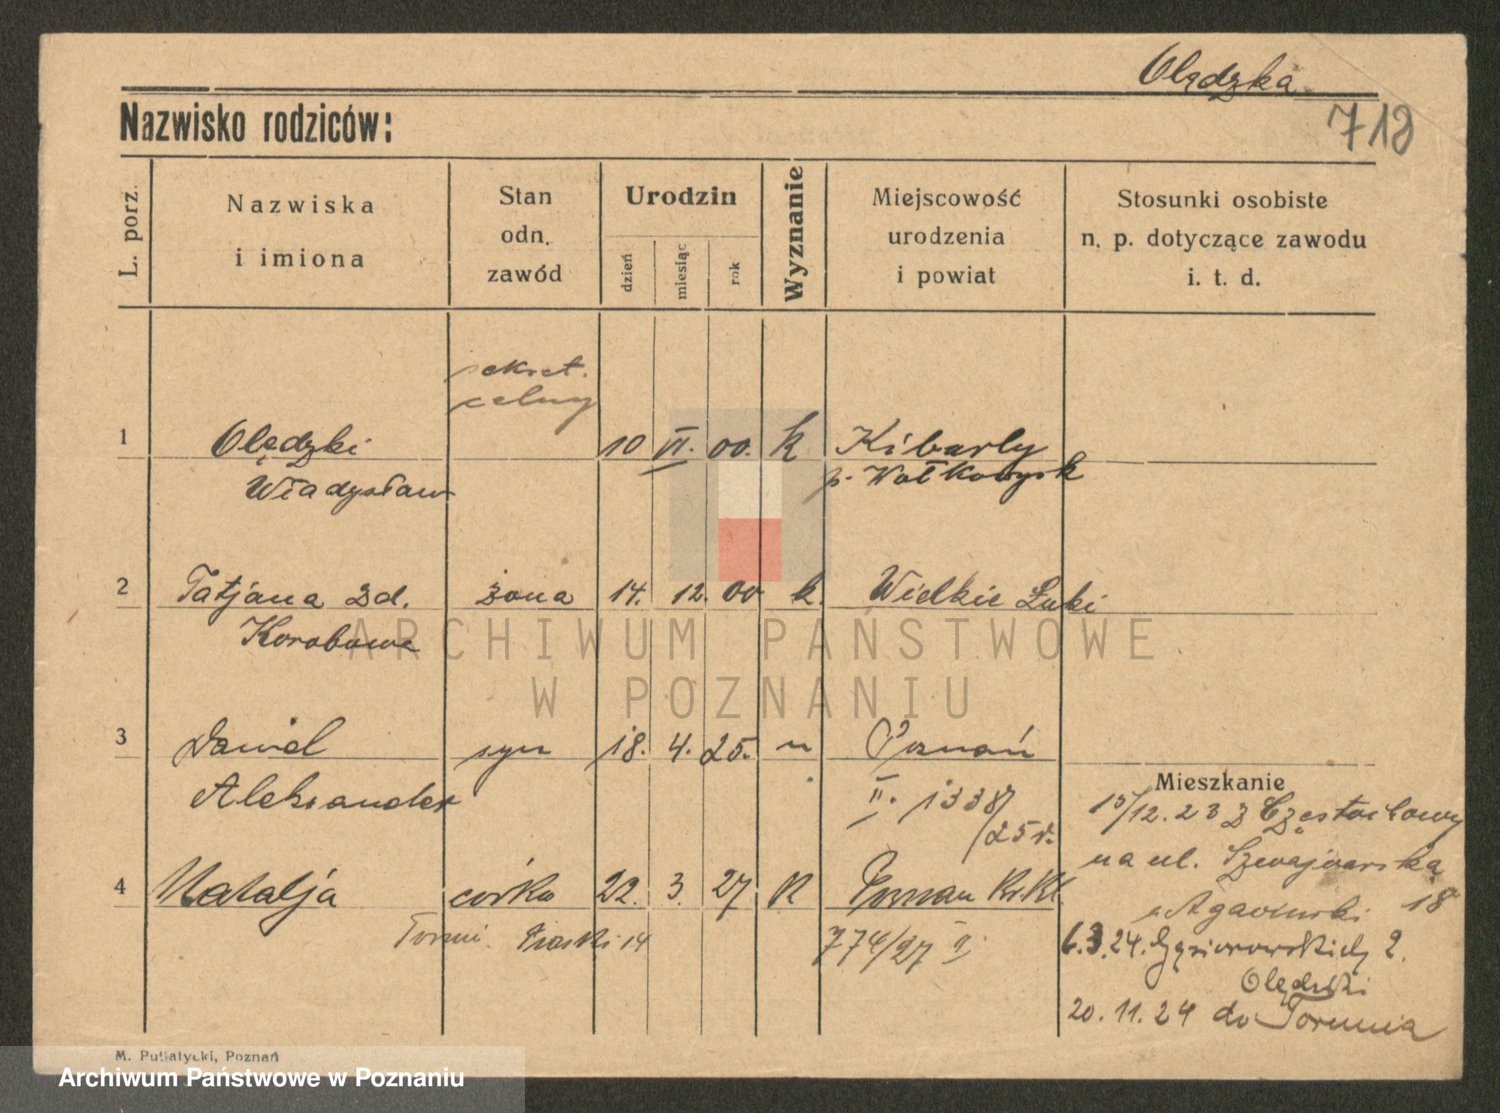 Olędzka
718
Nazwisko rodziców:
L. porz.
Nazwiska i imiona
Stan odn. zawód
Urodzin
dzień miesiąc rok
Wyznanie
Miejscowość urodzenia i powiat
Stosunki osobiste n. p. dotyczące zawodu i. t. d.
sekret.
celny
1 Olędzki 10 VI. 00. k Kibarty
Władysław p. Wołkowysk
2 Tatjana zd. żona 14. 12. 00 k. Wielkie Łuki
Korobowe
ARCHIWUM PAŃSTWOWE
W POZNANIU
3 Daniel syn 18. 4. 25. n Poznań
Mieszkanie
Aleksander II. 1338/25 r.
15/12. 23 z Częstochowy
na ul. Szwajcarska
4 Natalja córka 22. 3. 27 K Poznań
18
774/27 II
6.3.24. Gąsiorowskich 2.
Olędzki
20.11.24 do Torunia
M. Putiatycki, Poznań
Archiwum Państwowe w Poznaniu